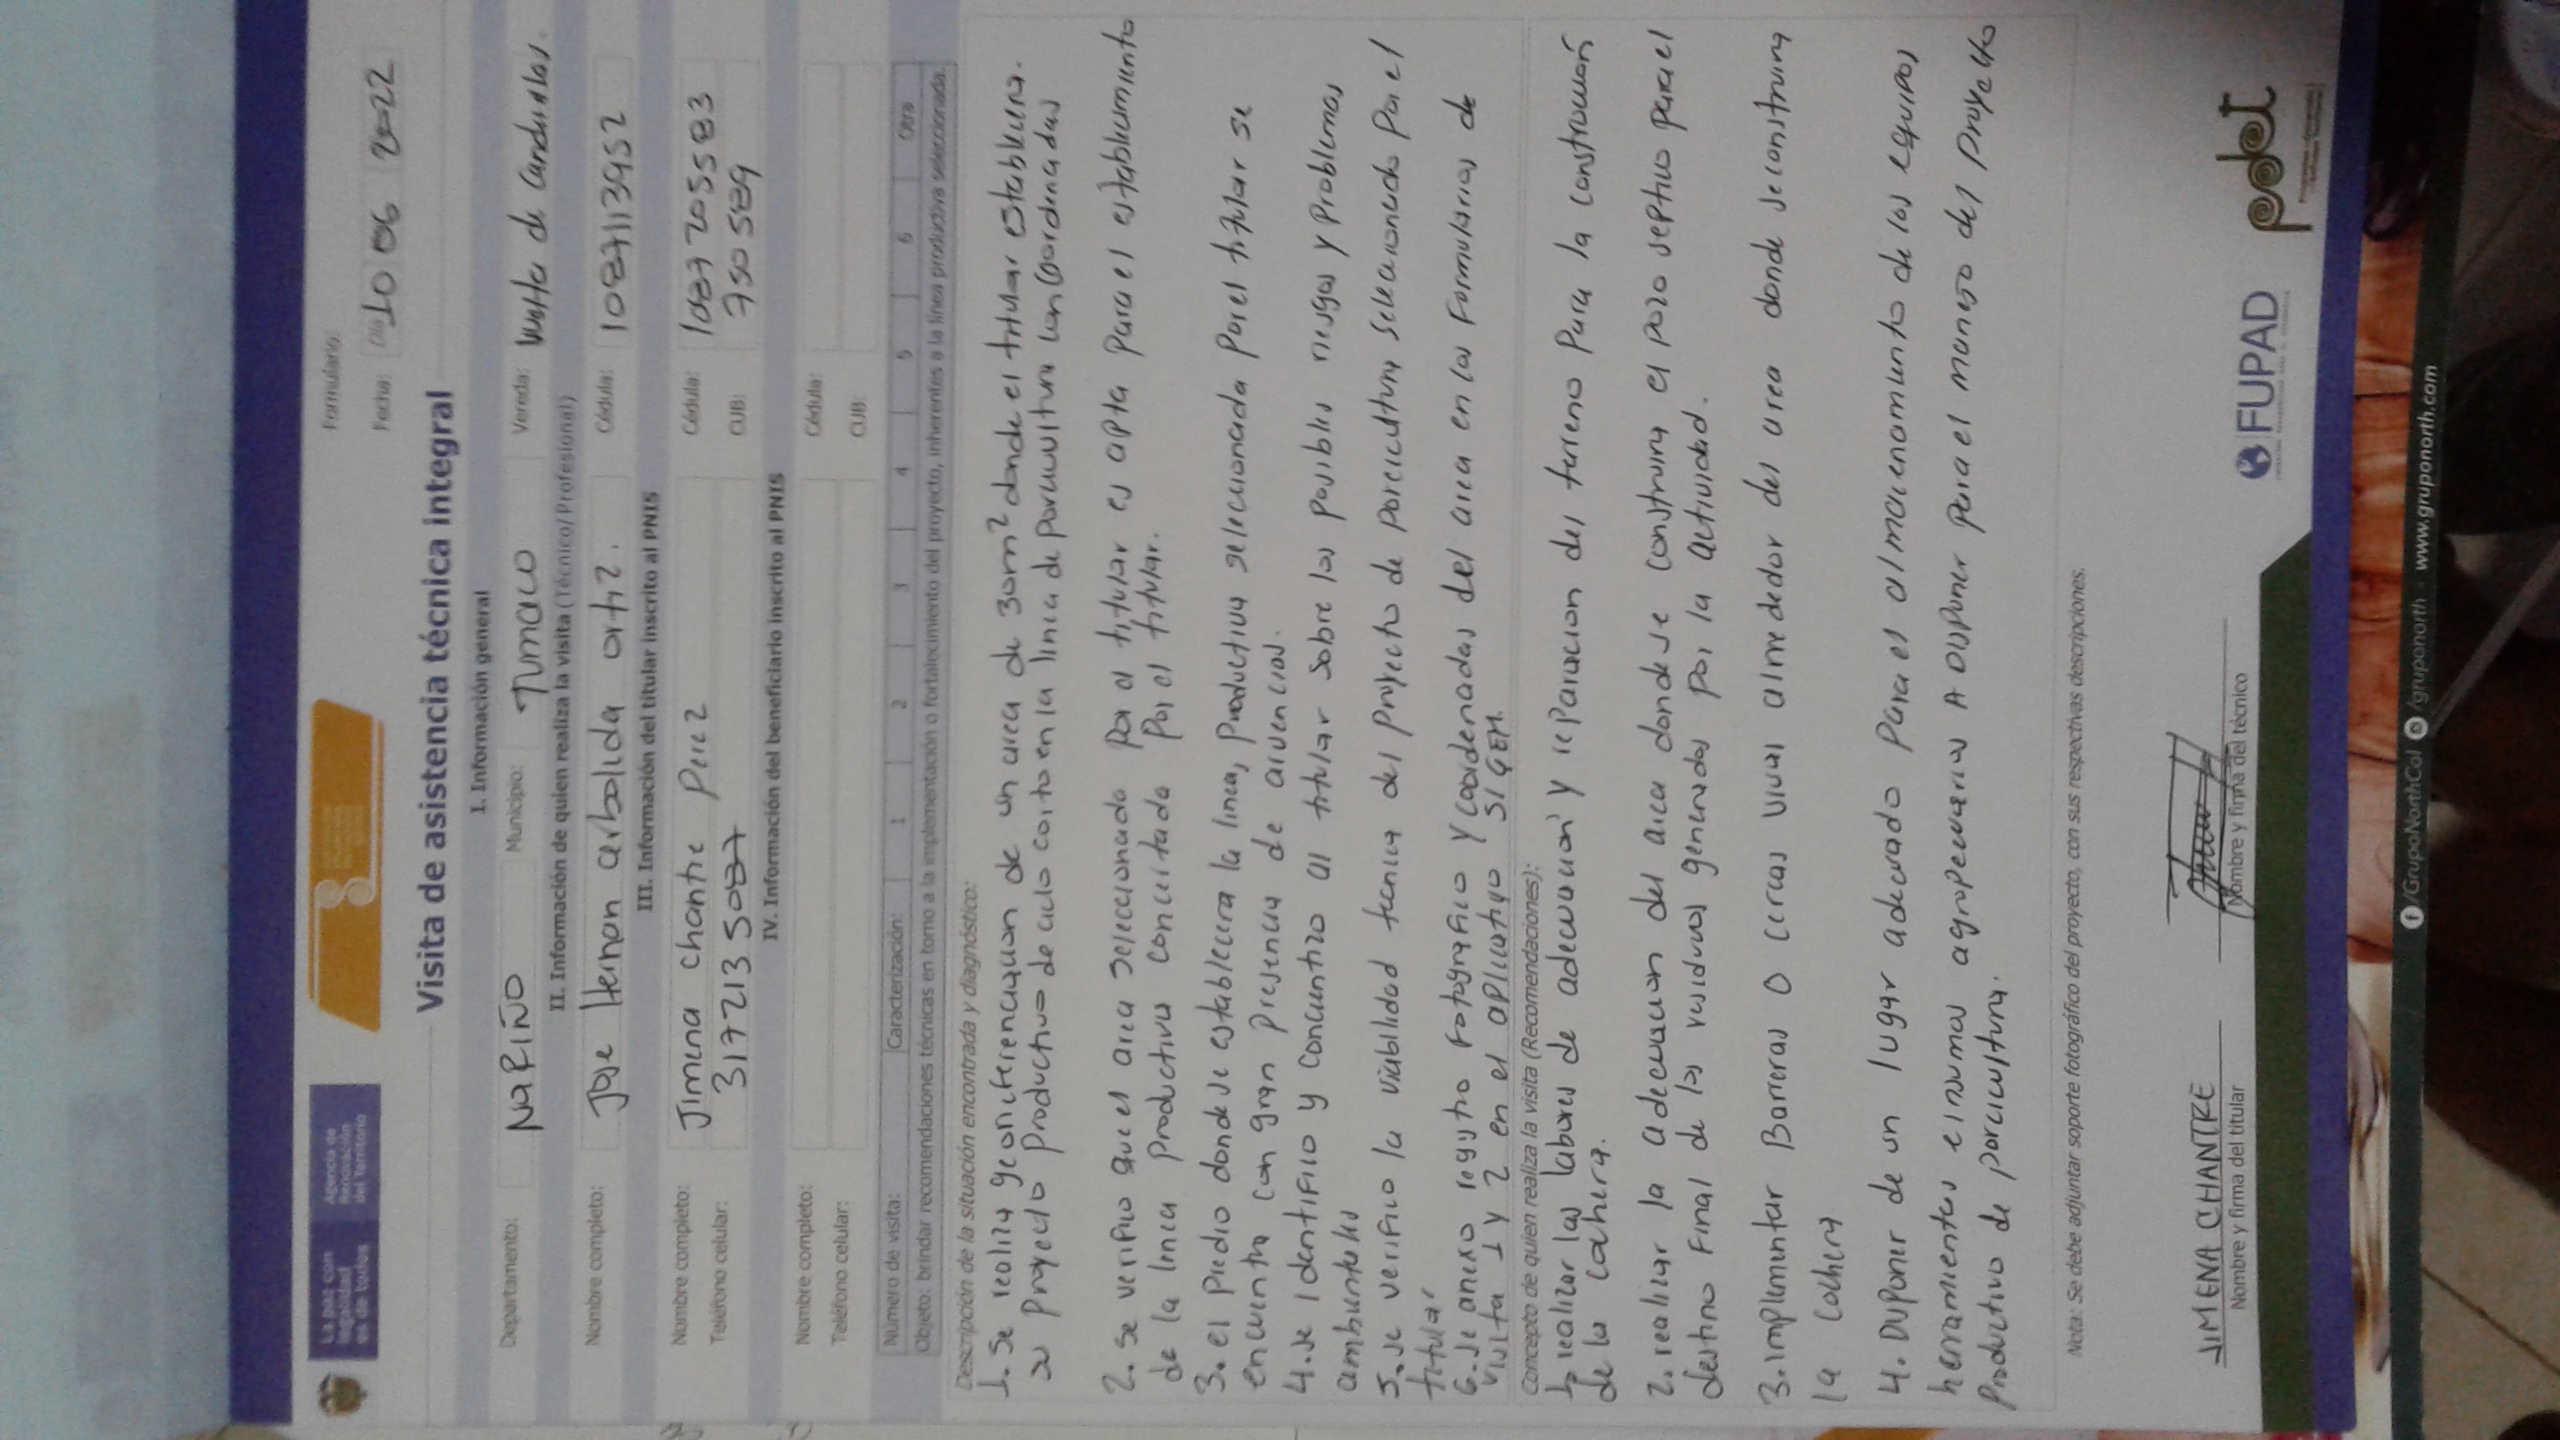 La paz con legalidad es de todos
Agencia de Renovación del Territorio
Formulario:
Fecha: Día 10 06 2022
Visita de asistencia técnica integral
I. Información general
Departamento: NARIÑO Municipio: TUMACO Vereda: Vuelta de Candelillas.
II. Información de quien realiza la visita (Técnico/Profesional)
Nombre completo: Jose Hernan arboleda ortiz. Cédula: 1087113952
III. Información del titular inscrito al PNIS
Nombre completo: Jimena chantre Perez Cédula: 1087205583
Teléfono celular: 3172135087 CUB: 750589
IV. Información del beneficiario inscrito al PNIS
Nombre completo: Cédula:
Teléfono celular: CUB:
Número de visita: Caracterización: 1 2 3 4 5 6 Otra
Objeto: brindar recomendaciones técnicas en torno a la implementación o fortalecimiento del proyecto, inherentes a la línea productiva seleccionada.
Descripción de la situación encontrada y diagnóstico:
1. Se realizó georeferenciacion de un area de 30m² donde el titular establecera.
su proyecto productivo de ciclo corto en la linea de porcicultura con Coordenadas
2. se verifico que el area seleccionado por el titular es apta para el establecimiento
de la linea productiva concertada por el titular.
3. el predio donde se establecera la linea productiva seleccionada por el titular se
encuentra con gran presencia de arvencias.
4. se identifico y concientizo al titular sobre los posibles riesgos y problemas
ambientales
5. se verifico la viabilidad tecnica del proyecto de porcicultura seleccionado por el
titular
6. se anexo registro fotografico y coordenadas del area en los formularios de
visita 1 y 2 en el aplicativo SIGEM.
Concepto de quien realiza la visita (Recomendaciones):
1. realizar las labores de adecuacion y reparacion del terreno para la construcion
de la cochera.
2. realizar la adecuacion del area donde se construira el pozo septico para el
destino final de los residuos generados por la actividad.
3. implementar Barreras o cercas vivas alrededor del area donde se construira
la cochera
4. Disponer de un lugar adecuado para el almacenamiento de los equipos,
herramientas e insumos agropecuarios A disponer para el manejo del proyecto
productivo de porcicultura.
Nota: Se debe adjuntar soporte fotográfico del proyecto, con sus respectivas descripciones.
JIMENA CHANTRE
Nombre y firma del titular
Nombre y firma del técnico
FUPAD
pdet
/GrupoNorthCol /gruponorth www.gruponorth.com